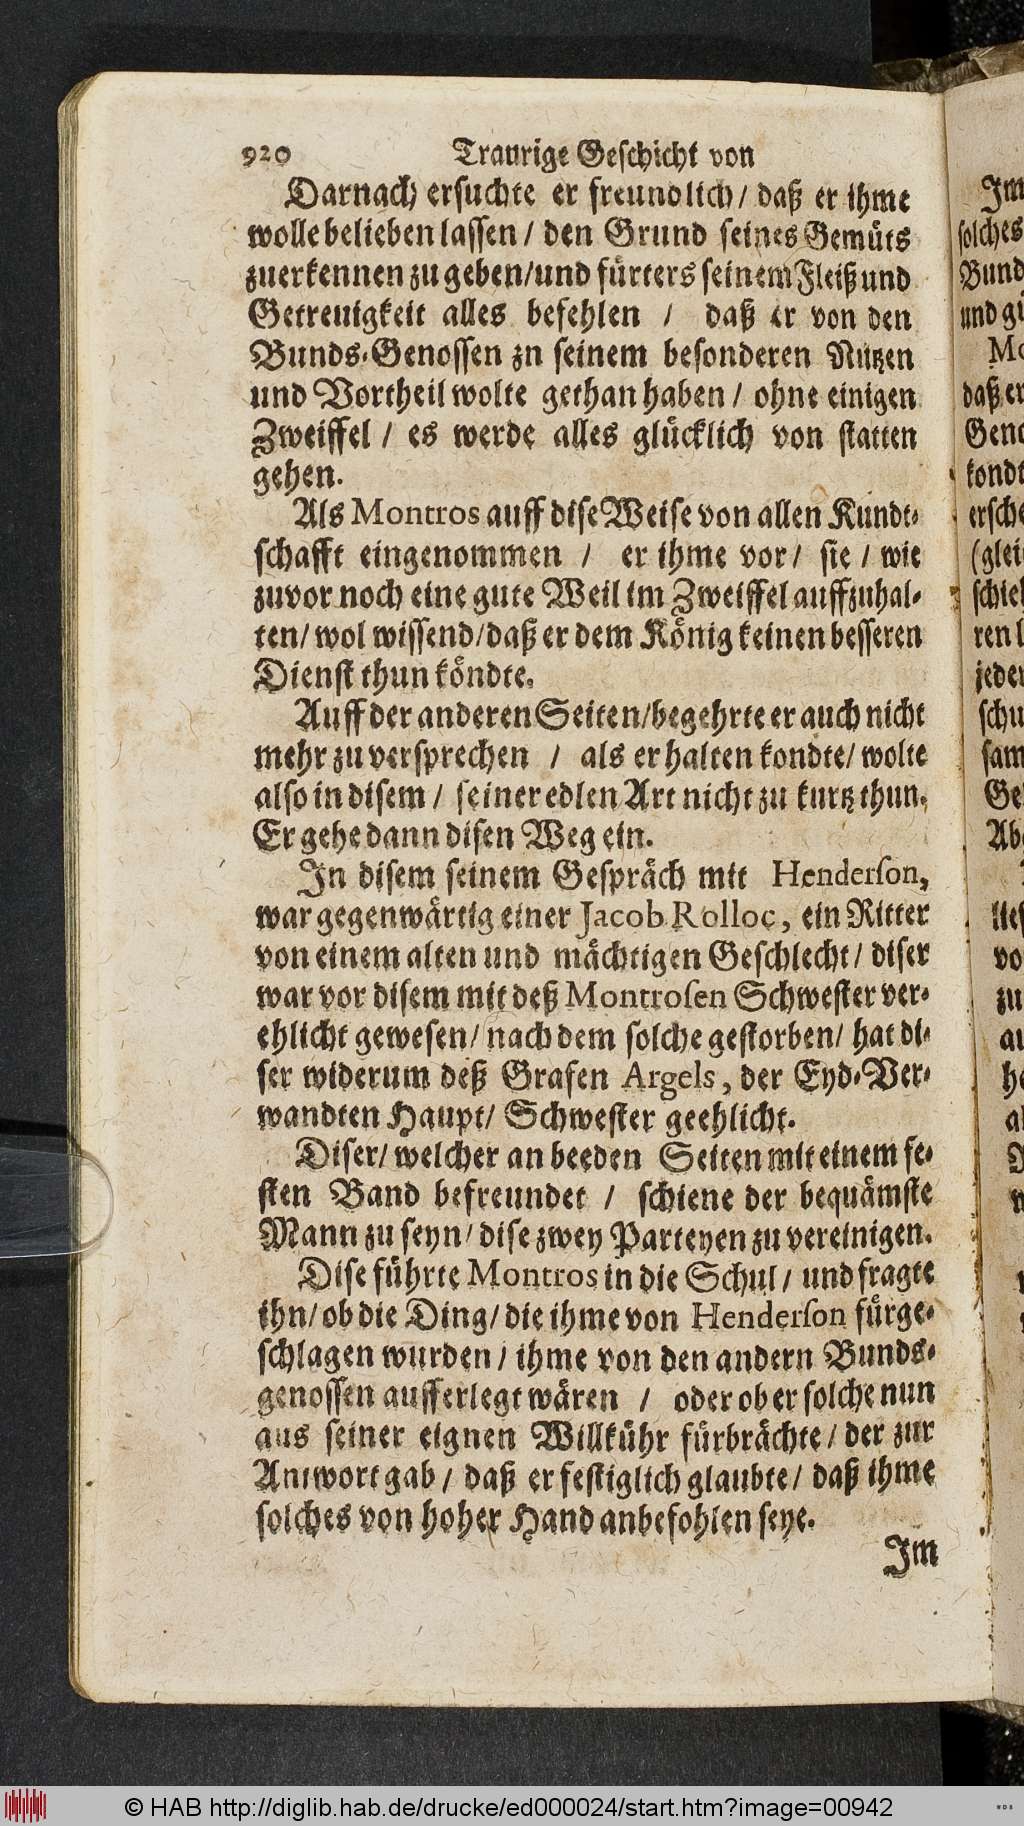 920 Traurige Geschicht von
Darnach ersuchte er freundlich / daß er ihme
wolle belieben lassen / den Grund seines Gemüts
zuerkennen zu geben/und fürters seinem Fleiß und
Getreuigkeit alles befehlen / daß er von den
Bunds-Genossen zn seinem besonderen Nutzen
und Vortheil wolte gethan haben / ohne einigen
Zweiffel / es werde alles glücklich von statten
gehen.
Als Montros auff dise Weise von allen Kundt-
schafft eingenommen / er ihme vor / sie / wie
zuvor noch eine gute Weil im Zweiffel auffzuhal-
ten/ wol wissend/daß er dem König keinen besseren
Dienst thun köndte.
Auff der anderen Seiten/begehrte er auch nicht
mehr zu versprechen / als er halten kondte/ wolte
also in disem / seiner edlen Art nicht zu kurtz thun.
Er gehe dann disen Weg ein.
In disem seinem Gespräch mit Henderson,
war gegenwärtig einer Jacob Rolloc, ein Ritter
von einem alten und mächtigen Geschlecht / diser
war vor disem mit deß Montrosen Schwester ver-
ehlicht gewesen/ nach dem solche gestorben/ hat di-
ser widerum deß Grafen Argels, der Eyd-Ver-
wandten Haupt/ Schwester geehlicht.
Diser/ welcher an beeden Seiten mit einem fe-
sten Band befreundet / schiene der bequämste
Mann zu seyn/ dise zwey Parteyen zu vereinigen.
Dise führte Montros in die Schul / und fragte
ihn/ ob die Ding/ die ihme von Henderson fürge-
schlagen wurden / ihme von den andern Bunds-
genossen aufferlegt wären / oder ob er solche nun
aus seiner eignen Willkühr fürbrächte / der zur
Antwort gab / daß er festiglich glaubte/ daß ihme
solches von hoher Hand anbefohlen seye.
Im
Im
solches
Bund
und
Mo
daß er
Geno
kondt
ersche
(glei
schie
ren
jeder
schu
sam
Ge
Ab
lies
vo
zu
au
he
© HAB http://diglib.hab.de/drucke/ed000024/start.htm?image=00942